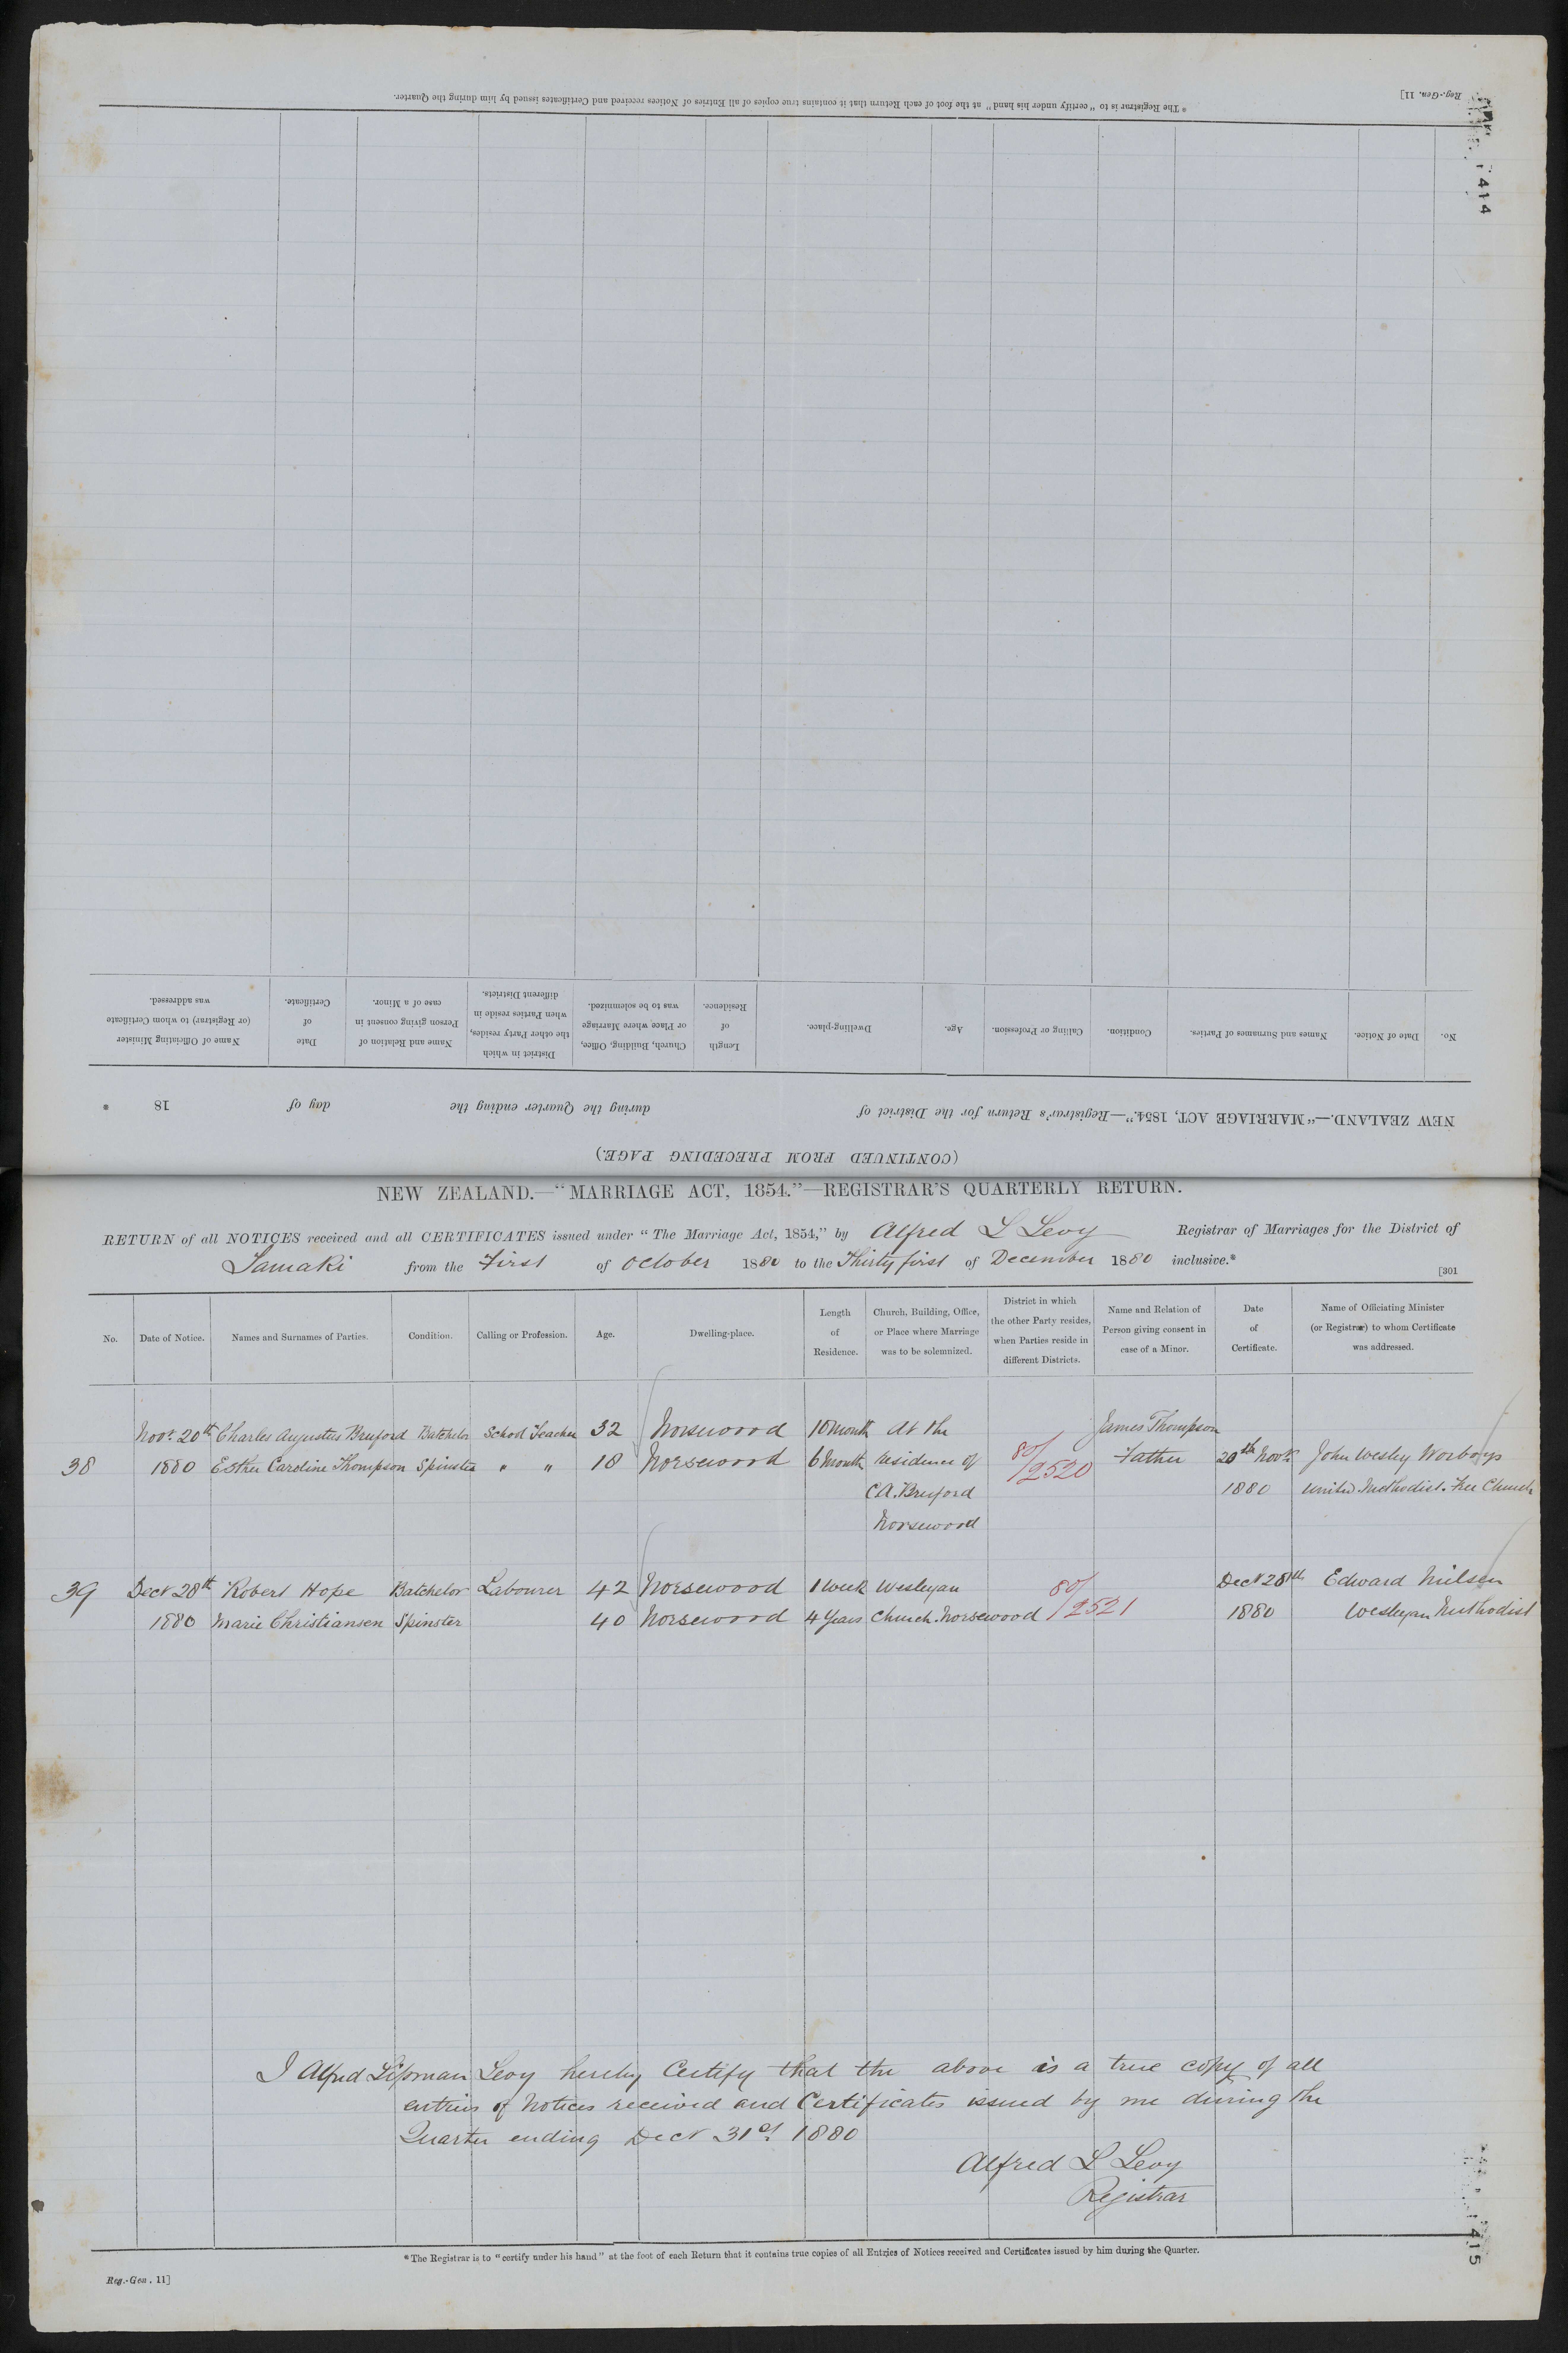 * The Registrar is to "certify under his hand" at the foot of each Return that it contains true copies of all Entries of Notices received and Certificates issued by him during the Quarter.
Reg.-Gen. 11]
1414
No.
Date of Notice.
Names and Surnames of Parties.
Condition.
Calling or Profession.
Age.
Dwelling-place.
Length
of
Residence.
Church, Building, Office,
or Place where Marriage
was to be solemnized.
District in which
the other Party resides,
when Parties reside in
different Districts.
Name and Relation of
Person giving consent in
case of a Minor.
Date
of
Certificate.
Name of Officiating Minister
(or Registrar) to whom Certificate
was addressed.
NEW ZEALAND.—"MARRIAGE ACT, 1854."—Registrar's Return for the District of during the Quarter ending the day of 18 .
(CONTINUED FROM PRECEDING PAGE.)
NEW ZEALAND.—"MARRIAGE ACT, 1854."—REGISTRAR'S QUARTERLY RETURN.
RETURN of all NOTICES received and all CERTIFICATES issued under "The Marriage Act, 1854," by Alfred L Levy Registrar of Marriages for the District of
Tamaki from the First of October 1880 to the Thirty first of December 1880 inclusive.*
[301
No.
Date of Notice.
Names and Surnames of Parties.
Condition.
Calling or Profession.
Age.
Dwelling-place.
Length
of
Residence.
Church, Building, Office,
or Place where Marriage
was to be solemnized.
District in which
the other Party resides,
when Parties reside in
different Districts.
Name and Relation of
Person giving consent in
case of a Minor.
Date
of
Certificate.
Name of Officiating Minister
(or Registrar) to whom Certificate
was addressed.
Novr. 20th Charles Augustus Bruford Batchelor School Teacher 32 Norsewood 10 Month At the James Thompson
38 1880 Esther Caroline Thompson Spinster " " 18 Norsewood 6 Month residence of 80/2520 Father 20th Novr. John Wesley Worboys
C.A. Bruford 1880 United Methodist Free Church
Norsewood
39 Decr 28th Robert Hope Batchelor Labourer 42 Norsewood 1 week Wesleyan 80/2521 Decr 28th Edward Nielsen
1880 Marie Christiansen Spinster 40 Norsewood 4 Years Church Norsewood 1880 Wesleyan Methodist
I Alfred Lipman Levy hereby Certify that the above is a true copy of all
entries of Notices received and Certificates issued by me during the
Quarter ending Decr 31st 1880
Alfred L Levy
Registrar
* The Registrar is to "certify under his hand" at the foot of each Return that it contains true copies of all Entries of Notices received and Certificates issued by him during the Quarter.
Reg.-Gen. 11]
1415